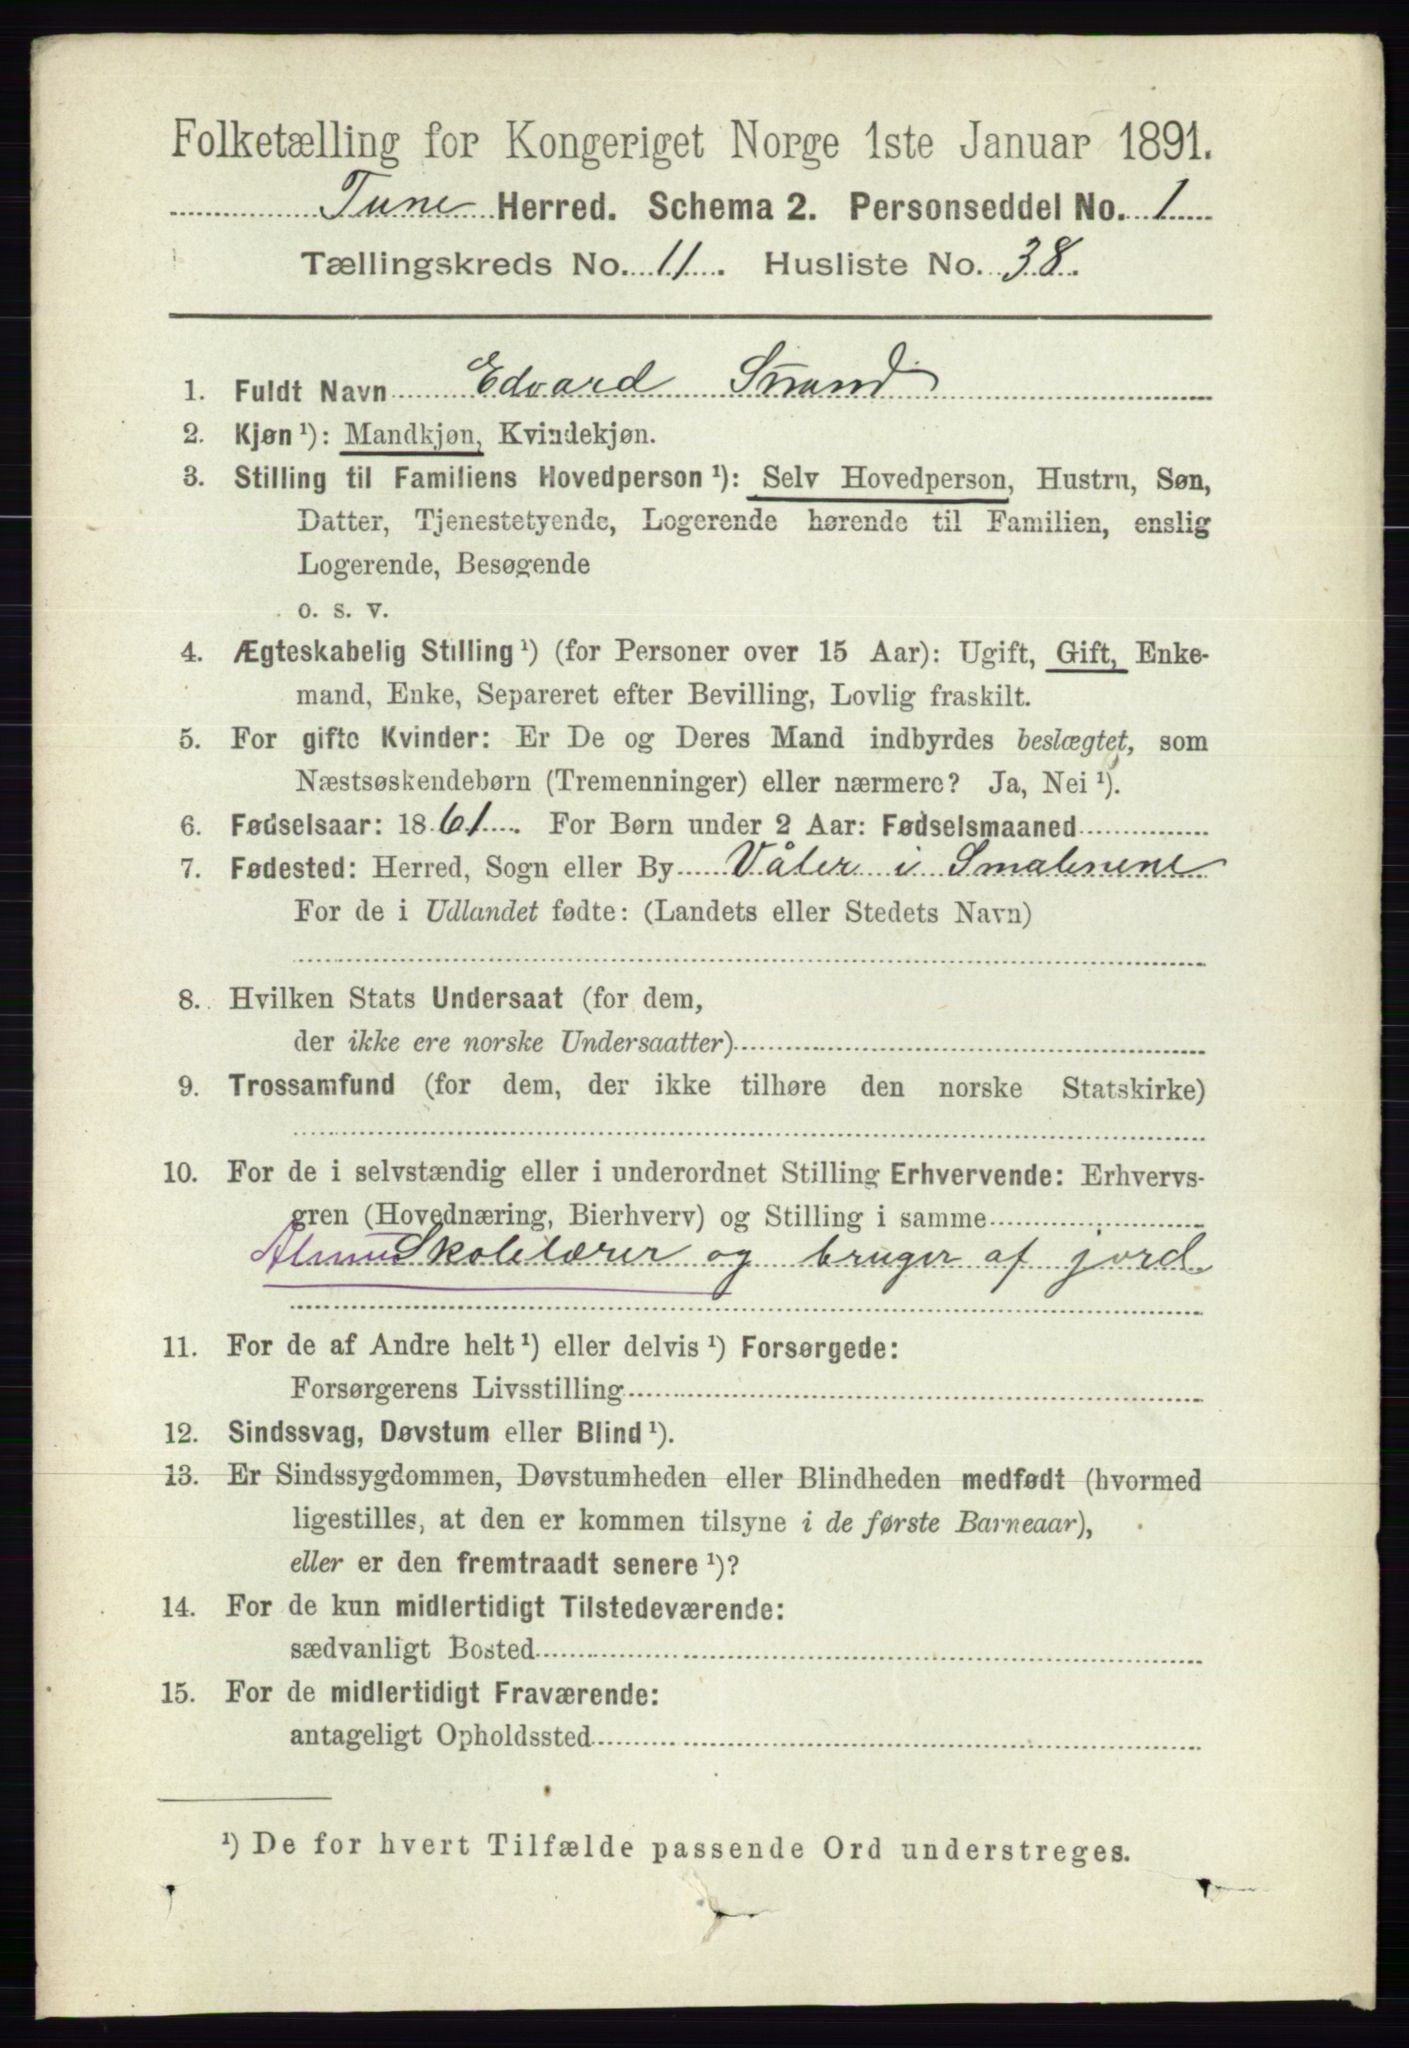 Folketælling for Kongeriget Norge 1ste Januar 1891.
Tune Herred. Schema 2. Personseddel No. 1
Tællingskreds No. 11. Husliste No. 38.
1. Fuldt Navn Edvard Strand
2. Kjøn ¹): Mandkjøn, Kvindekjøn.
3. Stilling til Familiens Hovedperson ¹): Selv Hovedperson, Hustru, Søn,
Datter, Tjenestetyende, Logerende hørende til Familien, enslig
Logerende, Besøgende
o. s. v.
4. Ægteskabelig Stilling ¹) (for Personer over 15 Aar): Ugift, Gift, Enke-
mand, Enke, Separeret efter Bevilling, Lovlig fraskilt.
5. For gifte Kvinder: Er De og Deres Mand indbyrdes beslægtet, som
Næstsøskendebørn (Tremenninger) eller nærmere? Ja, Nei ¹).
6. Fødselsaar: 1861. For Børn under 2 Aar: Fødselsmaaned
7. Fødested: Herred, Sogn eller By Våler i Smalenene
For de i Udlandet fødte: (Landets eller Stedets Navn)
8. Hvilken Stats Undersaat (for dem,
der ikke ere norske Undersaatter)
9. Trossamfund (for dem, der ikke tilhøre den norske Statskirke)
10. For de i selvstændig eller i underordnet Stilling Erhvervende: Erhvervs-
gren (Hovednæring, Bierhverv) og Stilling i samme
Almue Skolelærer og bruger af jord
11. For de af Andre helt ¹) eller delvis ¹) Forsørgede:
Forsørgerens Livsstilling
12. Sindssvag, Døvstum eller Blind ¹).
13. Er Sindssygdommen, Døvstumheden eller Blindheden medfødt (hvormed
ligestilles, at den er kommen tilsyne i de første Barneaar),
eller er den fremtraadt senere ¹)?
14. For de kun midlertidigt Tilstedeværende:
sædvanligt Bosted
15. For de midlertidigt Fraværende:
antageligt Opholdssted
¹) De for hvert Tilfælde passende Ord understreges.